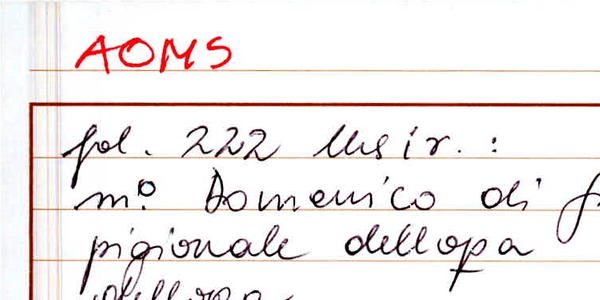 AOMS
fol. 222
m.º Domenico di
pigionale dell opa